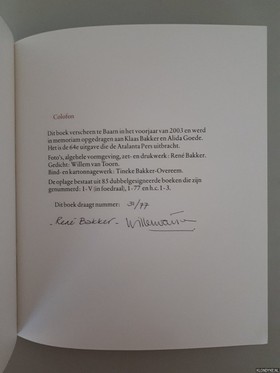 Colofon
Dit boek verscheen te Baarn in het voorjaar van 2003 en werd
in memoriam opgedragen aan Klaas Bakker en Alida Goede.
Het is de 64e uitgave die de Atalanta Pers uitbracht.
Foto's, algehele vormgeving, zet- en drukwerk: René Bakker.
Gedicht: Willem van Toorn.
Bind- en kartonnagewerk: Tineke Bakker-Overeem.
De oplage bestaat uit 85 dubbelgesigneerde boeken die zijn
genummerd: I-V (in foedraal), 1-77 en h.c. 1-3.
Dit boek draagt nummer: 31/77
René Bakker